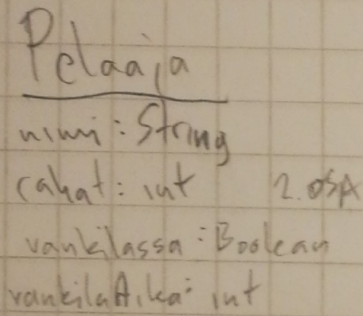 Pelaaja
nimi: String
rahat: int 2. OSA
vankilassa: Boolean
vankilaAika: int